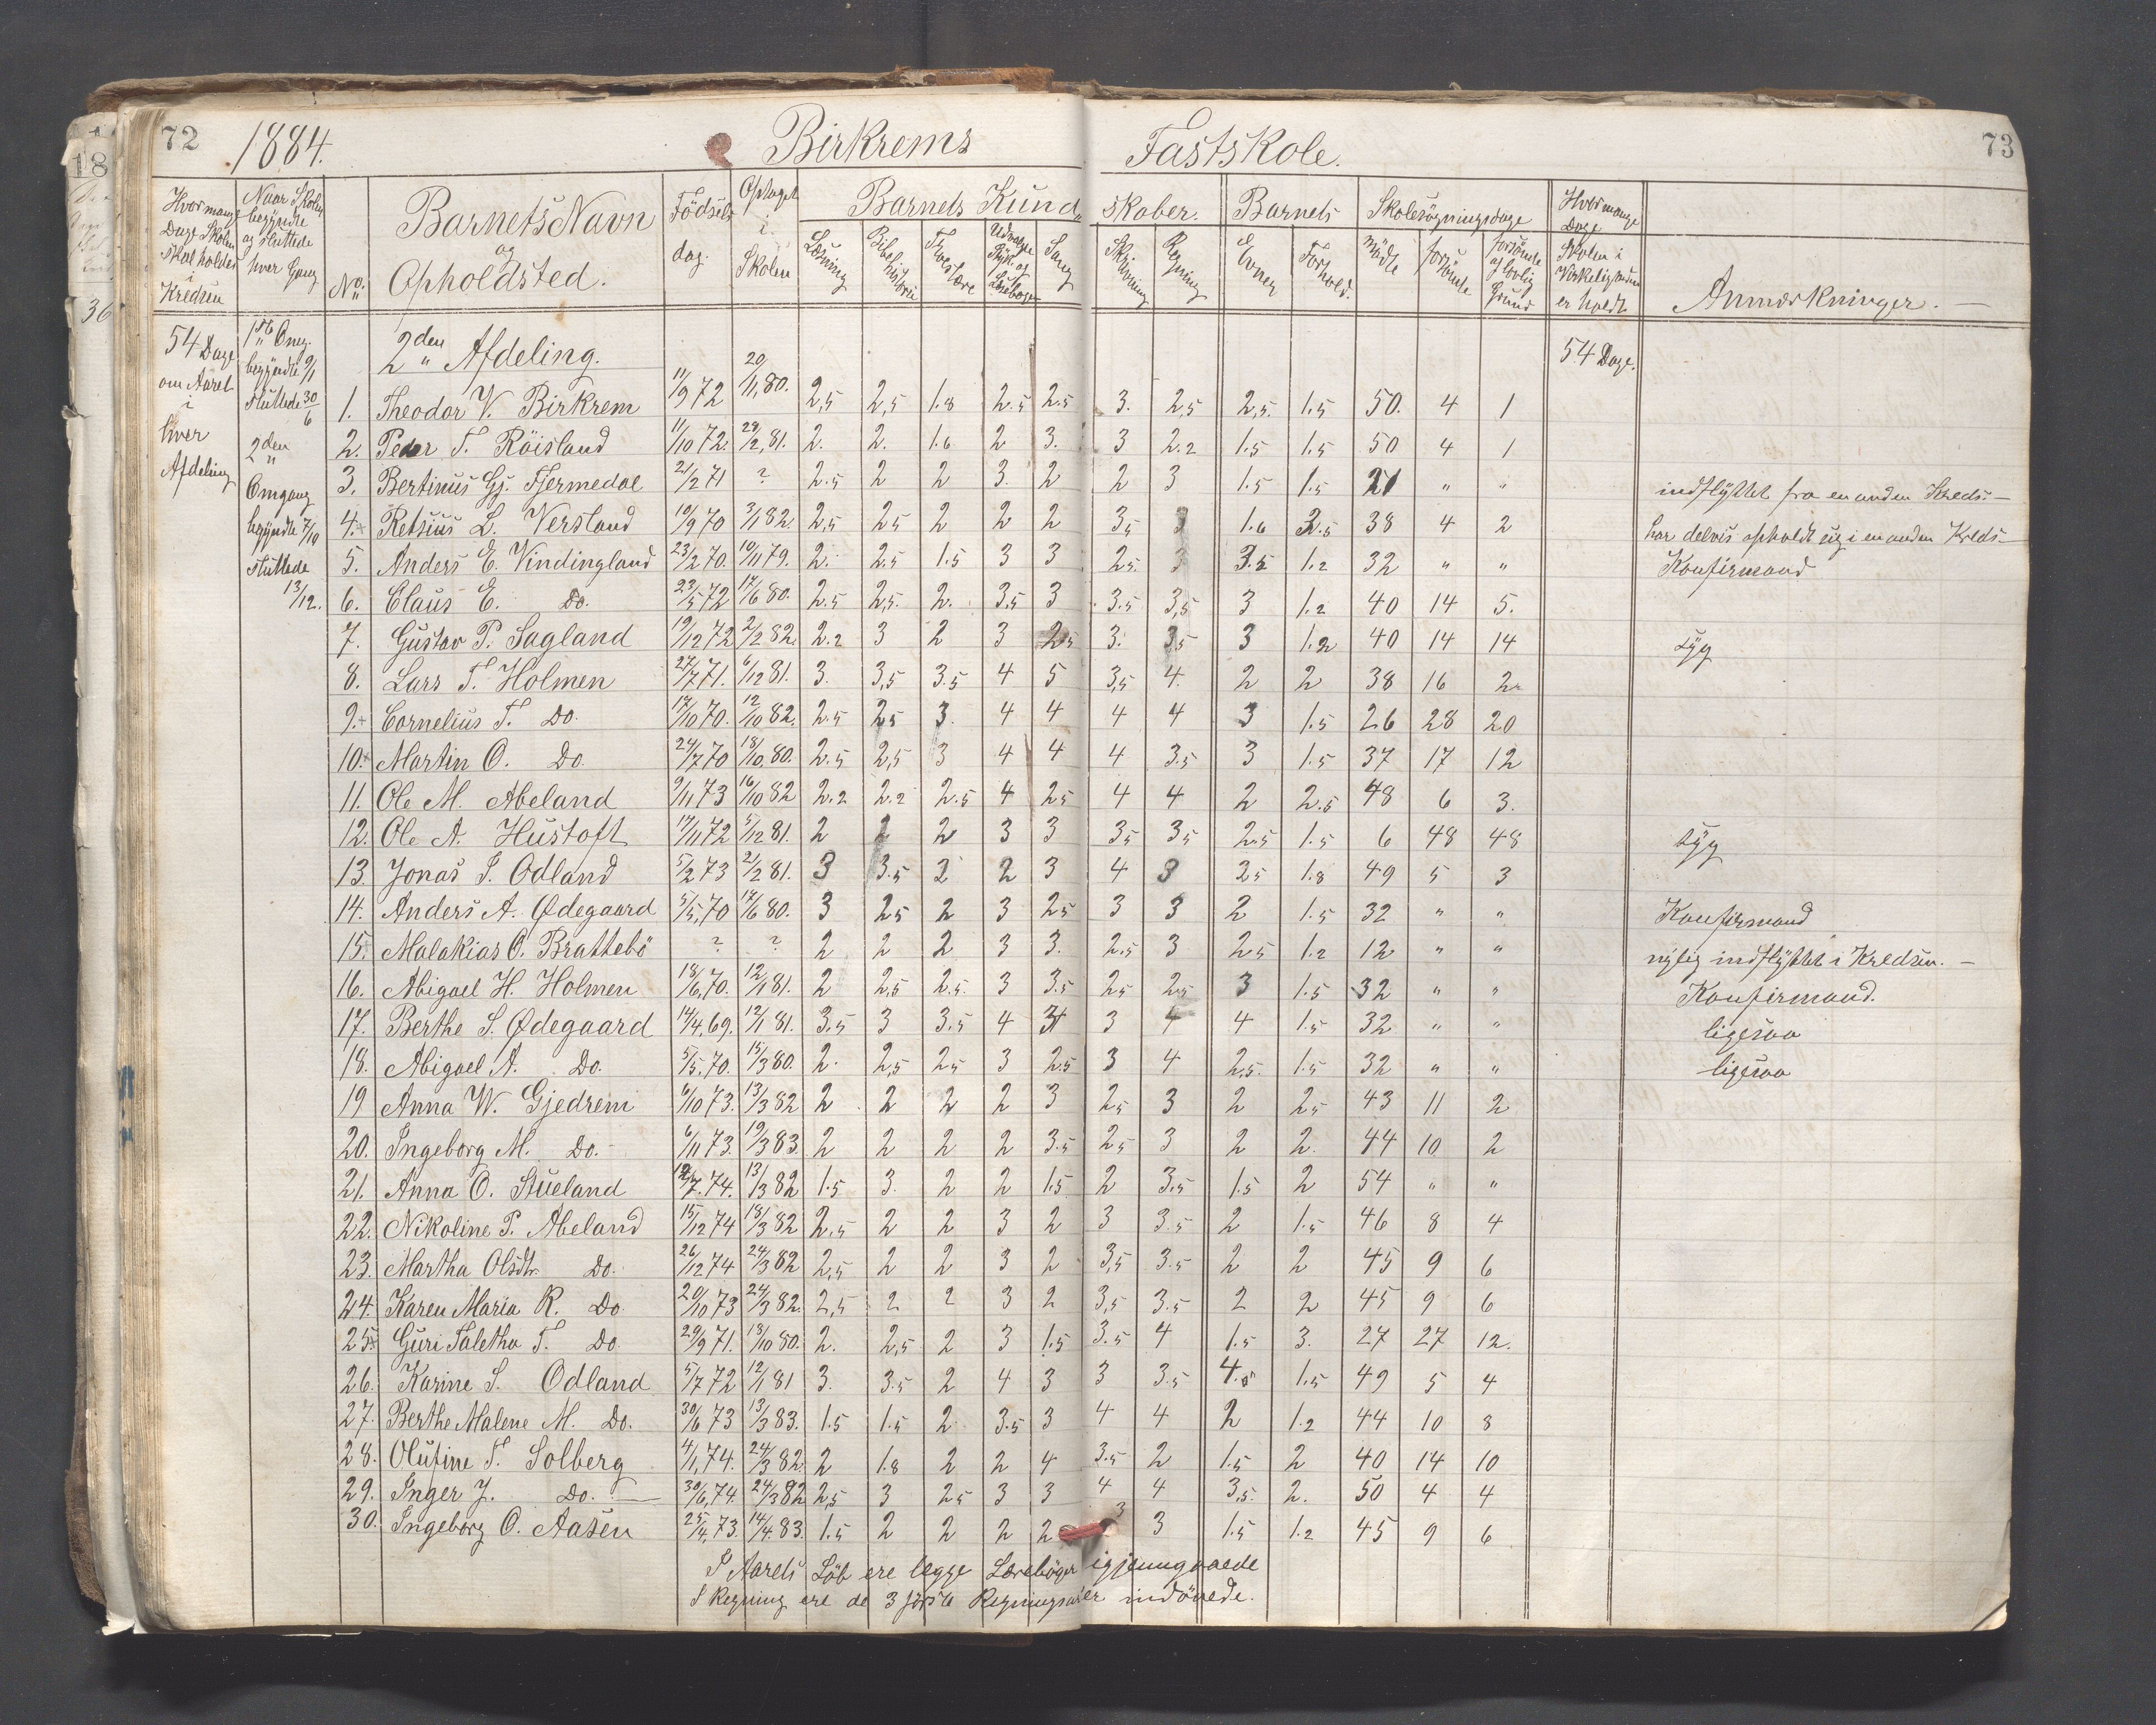 72 1884. Birkrems Fastskole. 73
Hvormange Dage Skolen skal holdes i Kredsen
Naar Skolen begyndte og sluttede hver Gang
No.
Barnets Navn og Opholdsted.
Födsels dag.
Optaget i Skolen
Barnets Kundskaber.
Læsning
Bibelhistorie
Troeslære
Udvalgte Styk. af Læsebogen
Sang
Skrivning
Regning
Barnets
Evner
Forhold.
Skolesögningsdage
mödte
forsömte
forsömte af lovlig Grund
Hvormange Dage Skolen i Virkeligheden er holdt
Anmærkninger.
54 Dage om Aaret i hver Afdeling
1ste Omg. begyndte 9/1 sluttede 30/6
2den Omgang begyndte 7/10 sluttede 13/12.
2den Afdeling.
54 Dage.
1. Theodor V. Birkrem 11/9 72 20/11 80. 2,5 2,5 1.8 2.5 2.5 3. 2,5 2,5. 1.5 50. 4 1
2. Peder T. Röisland 11/10 72. 29/2 81. 2. 2. 1.6 2 3. 3 2.2 1.5 1.5 50 4 1
3. Bertinus Gj. Fjermedal 21/2 71 ? 2.5 2 2 3. 2 2 3 1.5 1.5 21 " " indflyttet fra en anden Kreds.—
4. Retsius L. Versland 10/9 70 3/1 82. 2,5 2 5 2 2 2 3 5 3 1.6 2.5 38 4 2 har delvis opholdt sig i en anden Kreds—
5. Anders E. Vindingland 23/2 70. 10/11 79. 2. 2.5 1.5 3 3 2 5. 3 3.5 1.2 32 " " Konfirmand
6. Claus E. Do. 23/5 72 17/6 80. 2.5 2,5. 2. 3.5 3 3.5 3,5 3 1.2 40 14 5.
7. Gustav P. Sagland 19/12 72 2/2 82. 2.2 3 2 3 2 5 3. 3.5 3 1.2 40 14 14 syg
8. Lars T. Holmen 27/7 71. 6/12 81. 3. 3,5 3.5 4 5 3,5 4. 2 2 38 16 2
9. Cornelius T. Do. 17/10 70. 12/10 82. 2.5 2 5 3. 4 4 4 4 3 1.5 26 28 20
10. Martin O. Do. 24/7 70 18/10 80. 2.5 2,5 3 4 4 4 3.5 3 1.5 37 17 12
11. Ole M. Abeland 9/11 73 16/10 82 2.2 2.2 2.5 4 2 5 4 4 2 2.5 48 6 3.
12. Ole A. Hustoft 19/11 72 5/12 81. 2 2 2 3 3 3 5 3 5 2.5 1.5 6 48 48 syg
13. Jonas S. Odland 5/2 73 2/2 81. 3 3.5 2 2 3 4 3 2 5 1.8 49 5 3
14. Anders A. Ødegaard 5/5 70 17/6 80. 3 2 5 2 3 2 5 3 3 2 1.5 32 " " Konfirmand
15. Malakias O. Brattebö ? ? 2 2 2 3 3. 2.5 3 2 5 1.2 12 " " nylig indflyttet i Kredsen.—
16. Abigael H. Holmen 18/6 70. 12/1 81. 2 2,5 2.5. 3 3.5 2 5 2.5 3 1.5 32 " " Konfirmand.
17. Berthe S. Ødegaard 14/4 69. 12/1 81. 3.5 3 3.5 4 3 3 4 4 1.5 32 " " ligesaa
18. Abigael A. Do. 5/5 70. 15/3 80. 2. 2,5 2 5 3 2.5 3 4 2,5. 1.5 32 " " ligesaa
19 Anna W. Gjedrem 6/10 73. 13/3 82 2 2 2 2 3 2 5 3 2 2 5 43 11 2
20. Ingeborg M. Do. 6/11 73. 19/3 83. 2 2 2 2 3.5 2 5 3 2 2. 44 10 2
21. Anna O. Stueland 12/7 74. 13/3 82 1.5 3. 2 2 1.5 2 3.5 1.5 2 54 " "
22. Nikoline P. Abeland 15/12 74 18/3 82 2.5 2 2 3 2 3 3.5 2 1.5 46 8 4
23. Martha Olsdtr. Do. 26/12 74 24/3 82 2,5 2 2 3 2 3,5 3.5 2 2 45 9 6
24. Karen Maria R. Do 20/10 73 24/3 82. 2,5 2 2 3 2 3,5 3.5 2 2 45 9 6
25. Guri Taletha T. Do. 29/9 71. 18/10 80. 2. 2,5 2 3 1.5 3.5 4 1.5 3. 27 27 12.
26. Karine S. Odland 5/7 72 12/1 81 3. 3.5 2 4 3 3 3.5 4.5 1.5 49 5 4
27. Berthe Malene M. Do. 30/6 73 13/3 83. 1.5 1.5 2 3.5 3 4 4 2 1.2 44 10 8
28. Olufine T. Solberg 4/1 74. 24/3 82. 2 1.8 2 2 4 3.5 2 1.5 2 40 14 10
29. Inger J. Do. — 30/6 74. 24/3 82 2,5 3 2 5 3 3 4 4 3,5. 2. 50 4 4
30. Ingeborg O. Aasen 25/4 73. 14/4 83. 1.5 2 2 2 2 3 3 1.5 1.2 45 9 6
I Aarets Löb ere begge Læreböger igjennemgaaede
I Regning ere de 3 förste Regningsarter indövede.